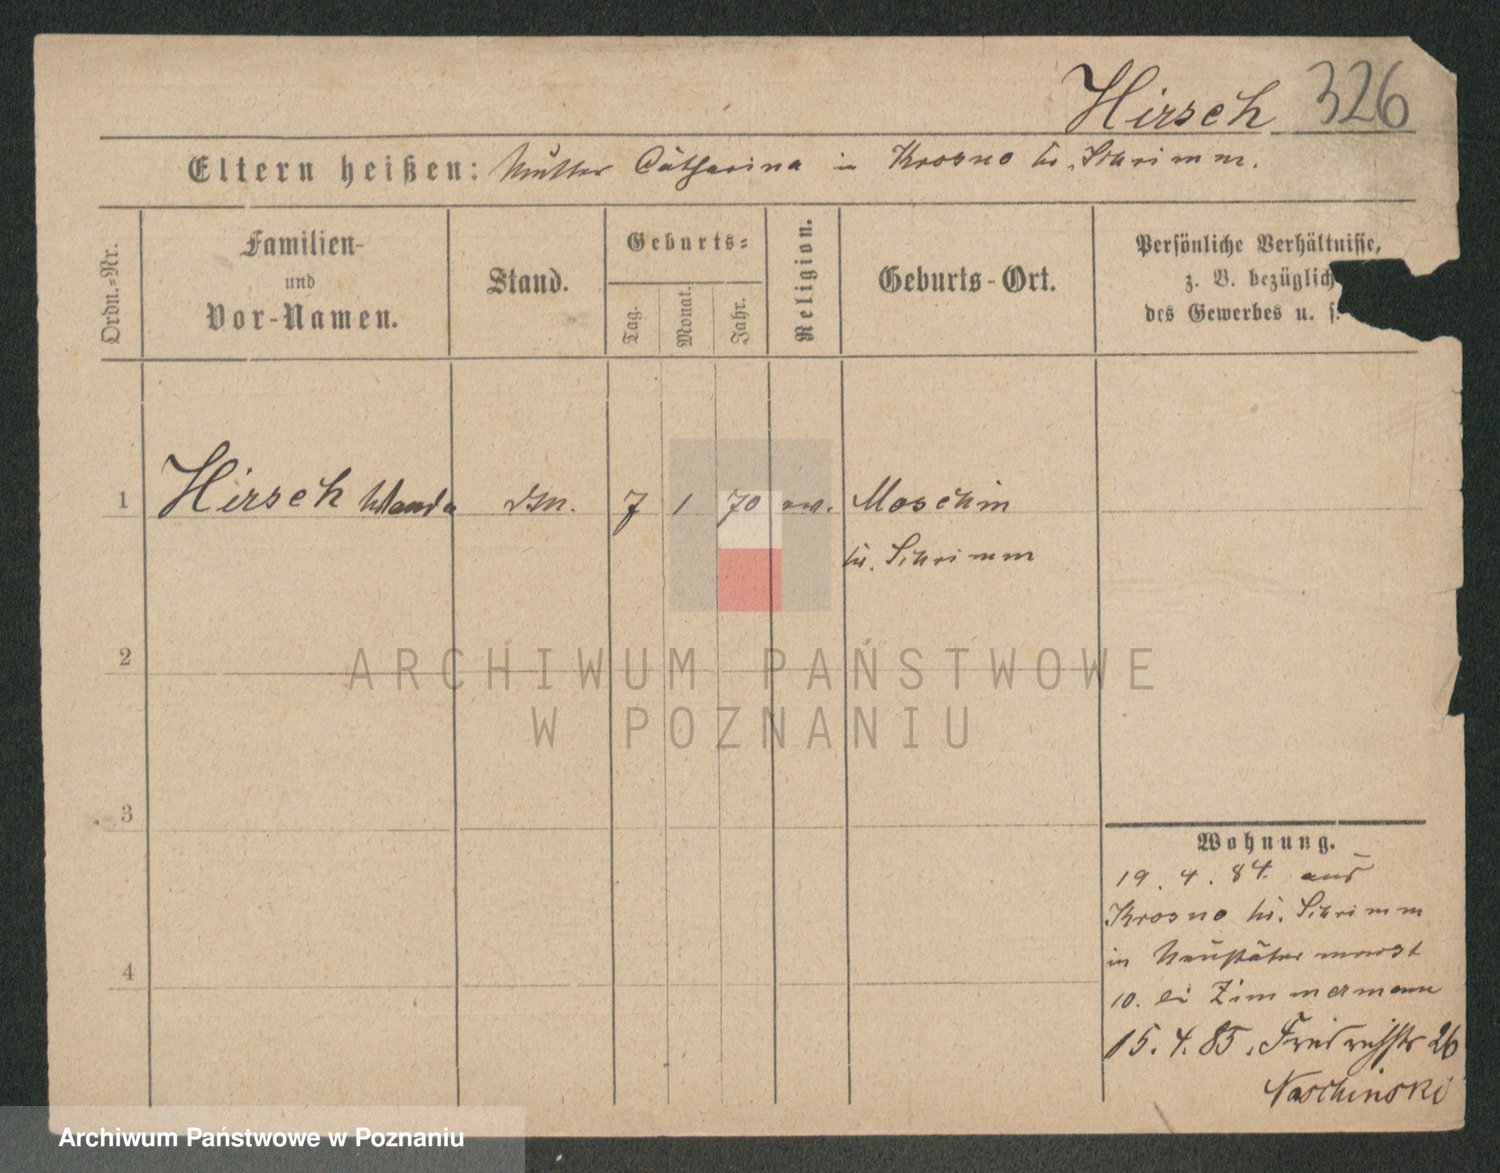 Hirsch 326
Eltern heißen: Mutter Catharina in Krosno Kr. Schrimm.
Ordn.-Nr.
Familien-
und
Vor-Namen.
Stand.
Geburts-
Tag.
Monat.
Jahr.
Religion.
Geburts-Ort.
Persönliche Verhältnisse,
z. B. bezüglich
des Gewerbes u. s.
1 Hirsch Wanda 7 1 70 ev. Moschin
Kr. Schrimm
2
ARCHIWUM PAŃSTWOWE
W POZNANIU
3
4
Wohnung.
19. 4. 84. aus
Krosno Kr. Schrimm
in Neustädtermarkt
10. bei Zimmermann
15. 4. 85. Friedrichstr 26
Naschinski
Archiwum Państwowe w Poznaniu